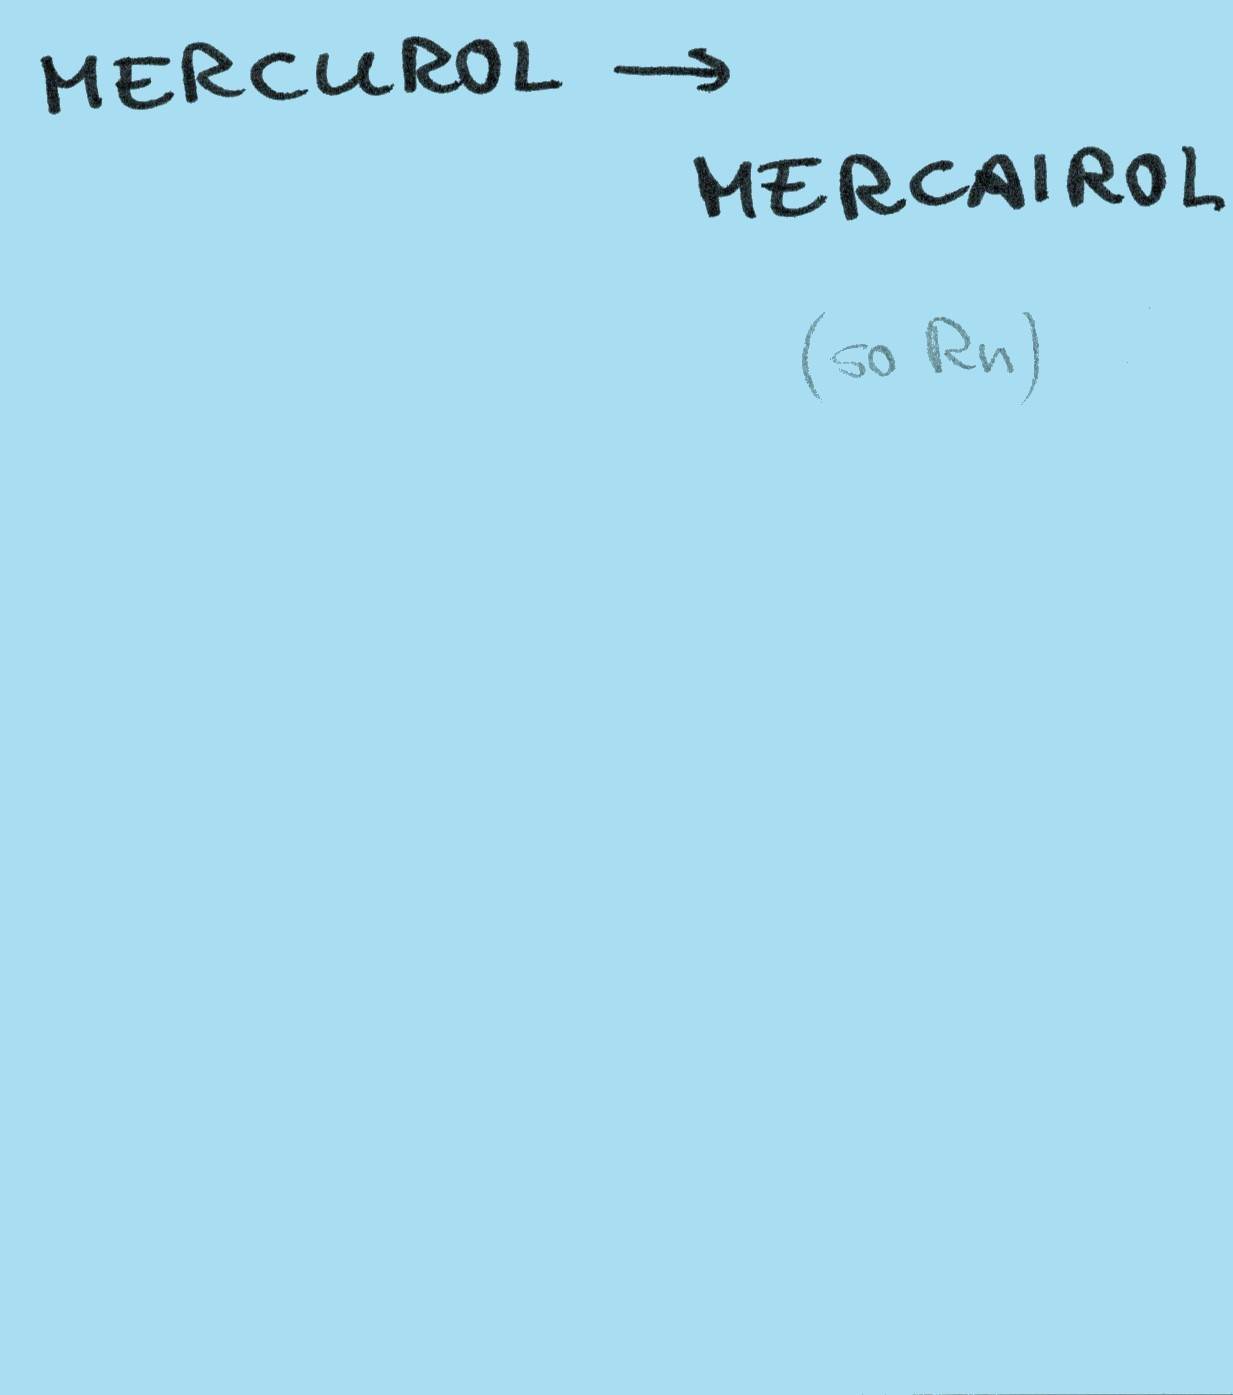 MERCUROL →
MERCAIROL
(so Rn)